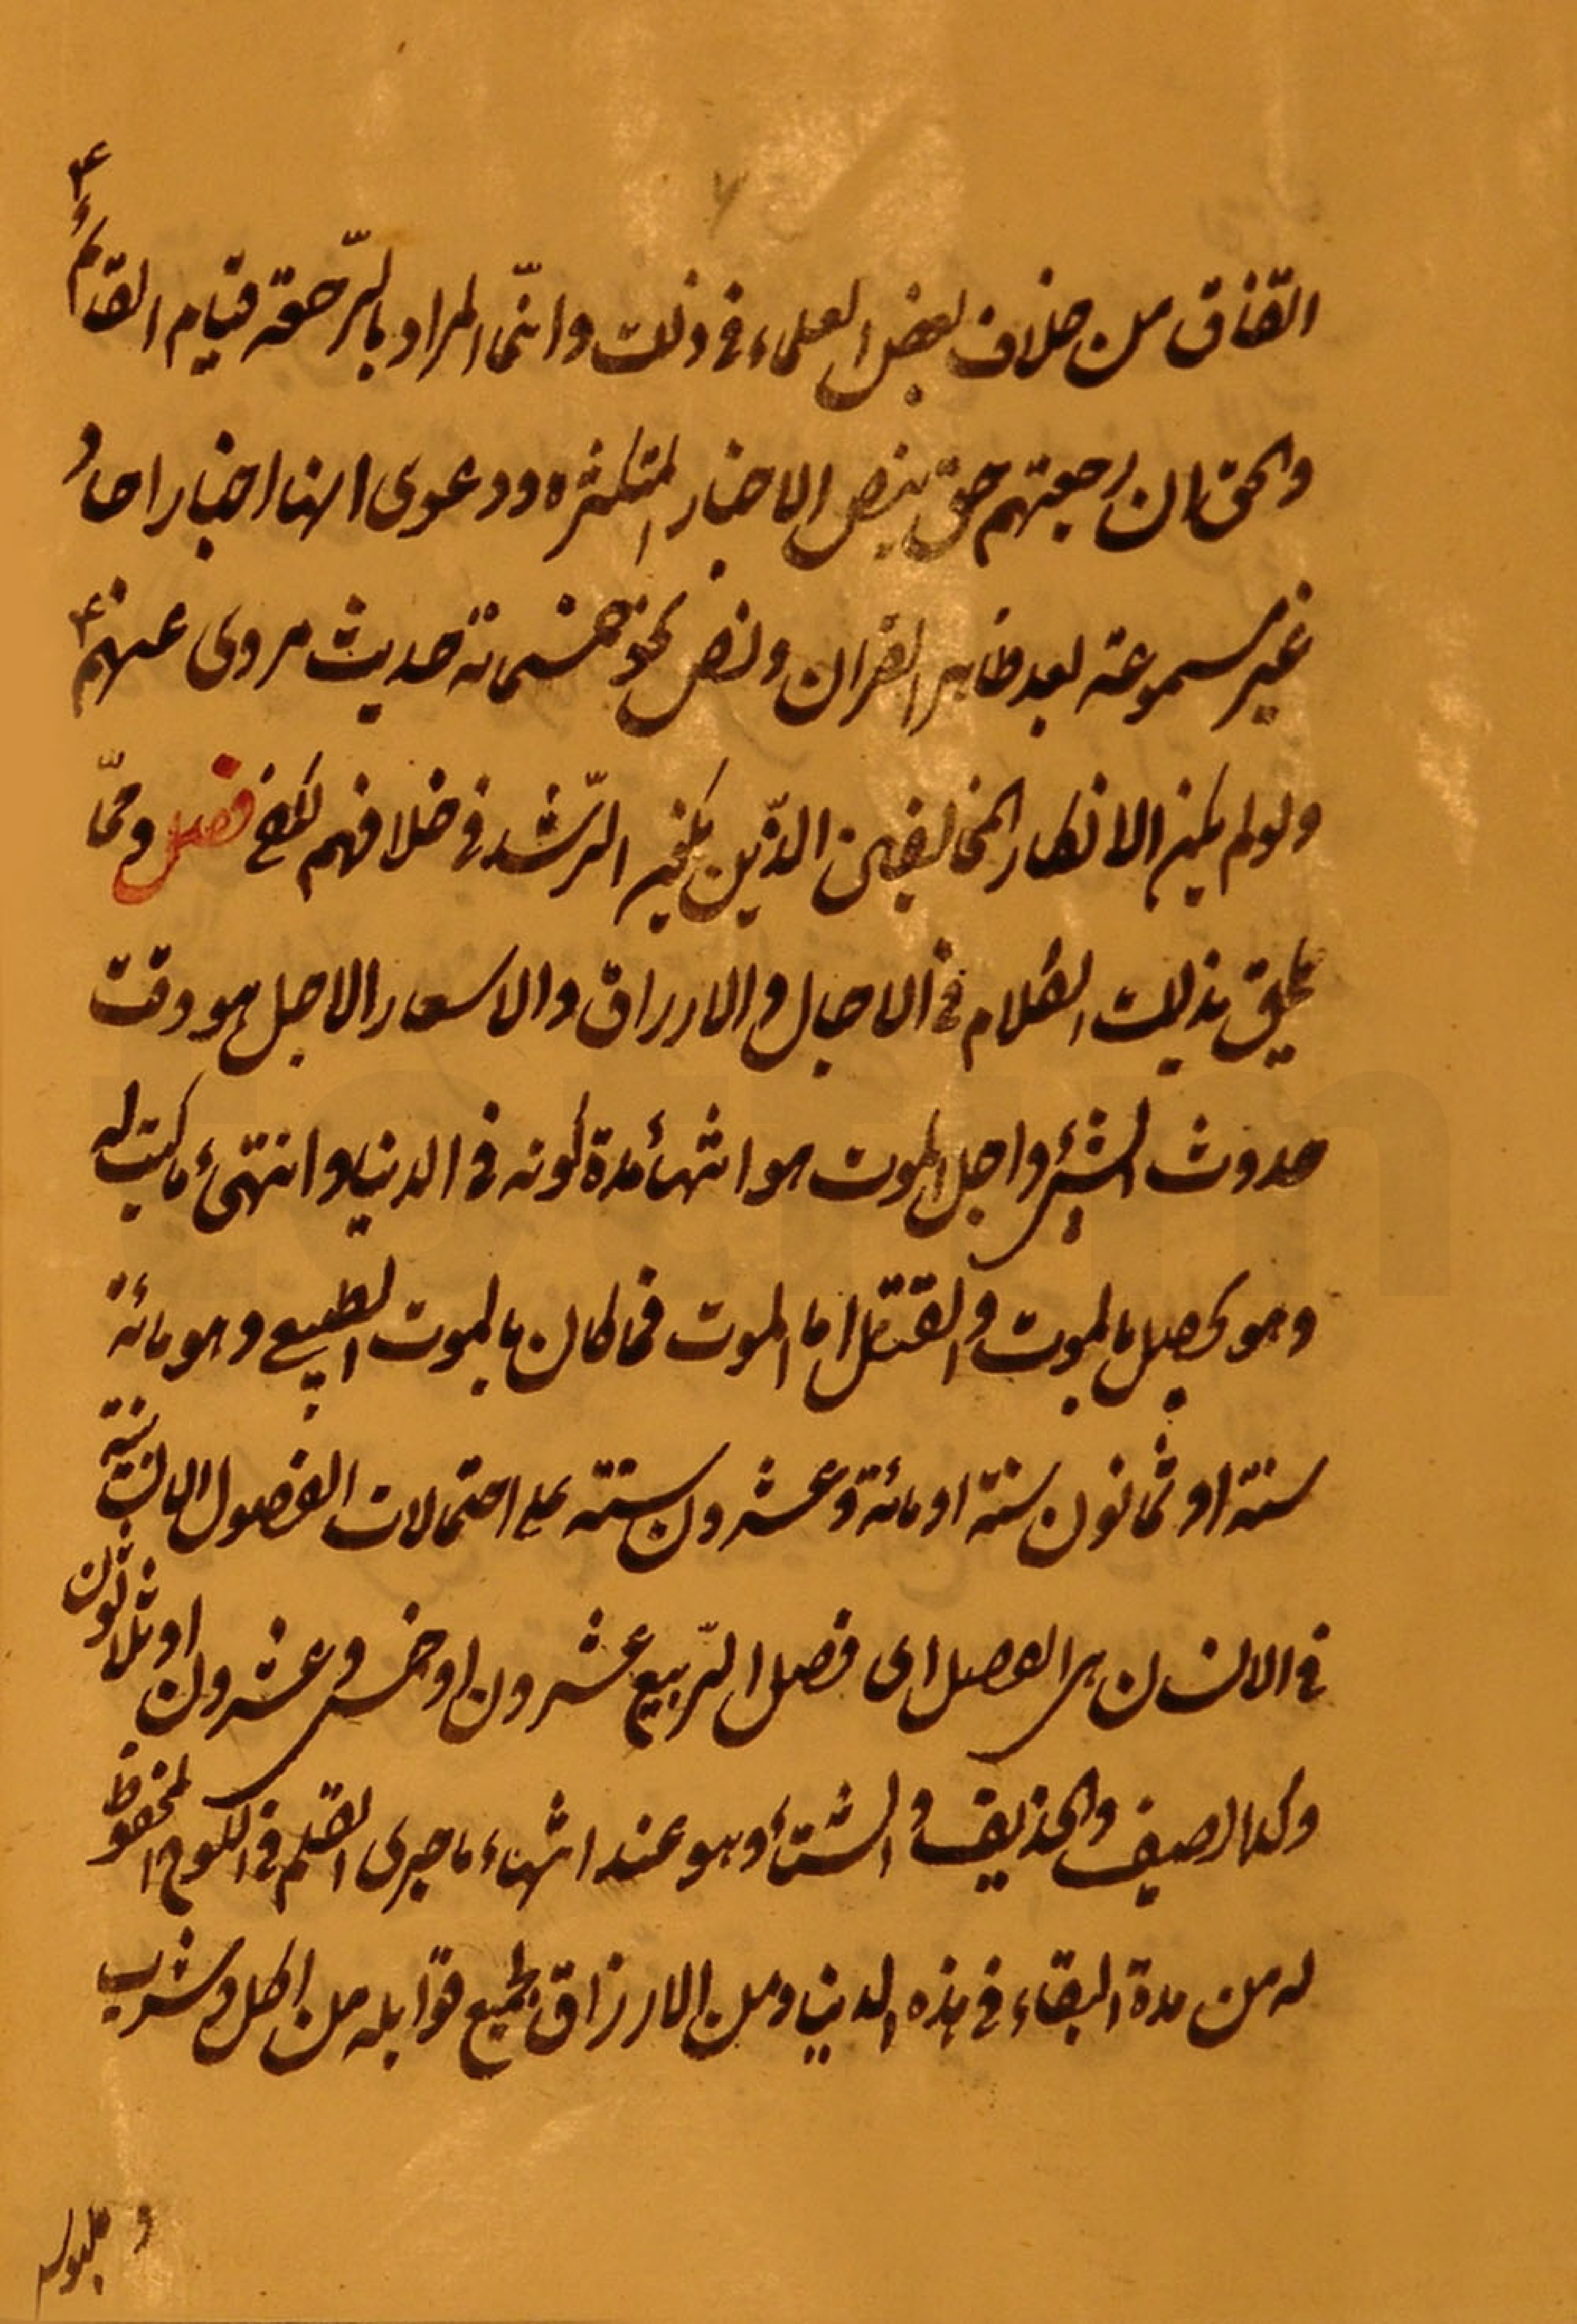 اتفاق من خلاف بعض العلماء في ذلك وانّما المراد بالرّجعة قيام القائم ع
والحق ان رجعتهم حق بنص الاخبار المتكثره ودعوى انها اخبار احاد
غير مسموعة بعد ظاهر القران ونص نحو خمسمائة حديث مروى عنهم ع
ولو لم يكن الا انكار المخالفين الذّين يكون الرّشد في خلافهم لكفى فصل وممّا
يلحق بذلك الكلام في الاجال والارزاق والاسعار الاجل هو وقت
حدوث الشئ واجل الموت هو انتهاء مدة كونه في الدنيا وانتهاء ما كتب له
وهو يحصل بالموت والقتل اما الموت فما كان بالموت الطبيعى وهو مائة
سنة او ثمانون سنة او مائة وعشرون سنة على احتمالات الفصول الانسانية
في الانسان هل الفصل اى فصل الرّبيع عشرون او خمس وعشرون او ثلاثون
وكذا الصيف والخريف والشتاء وهو عند انتهاء ما جرى القلم في اللوح المحفوظ
له من مدة البقاء في هذه الدنيا ومن الارزاق لجميع قوابله من اكل وشرب
وملبوس